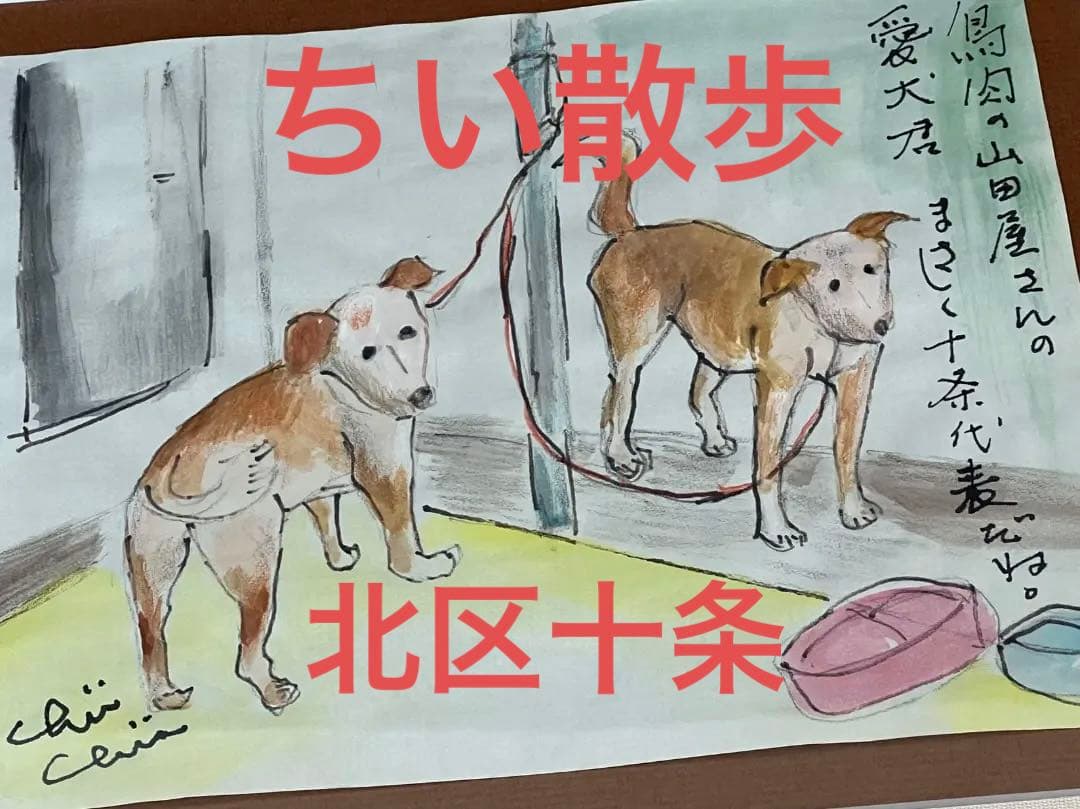 ちい散歩
鳥肉の山田屋さんの
愛犬君 まさしく十条代表だね。
北区十条
chii
chii